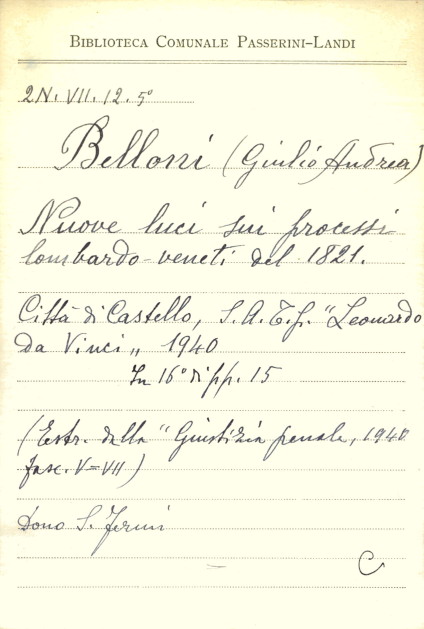 BIBLIOTECA COMUNALE PASSERINI-LANDI
2N. VII. 12. 5°
Belloni (Giulio Andrea)
Nuove luci sui processi
lombardo-veneti del 1821.
Città di Castello, S.A.T.G. "Leonardo
da Vinci„ 1940
In 16° di pp. 15
(Estr. dalla "Giustizia penale, 1940
fasc. V=VII)
Dono S. Fermi
C